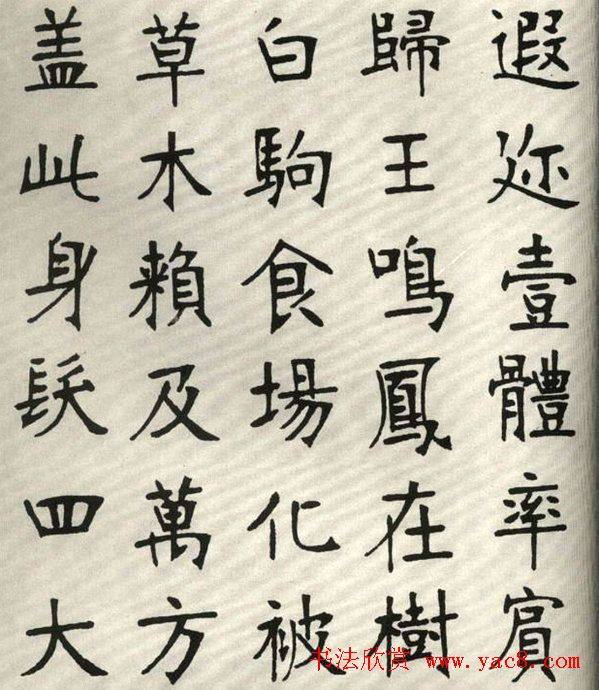 遐迩壹體率賓
歸王鳴鳳在樹
白駒食場化被
草木賴及萬方
盖此身髮四大
书法欣赏 www.yac8.com